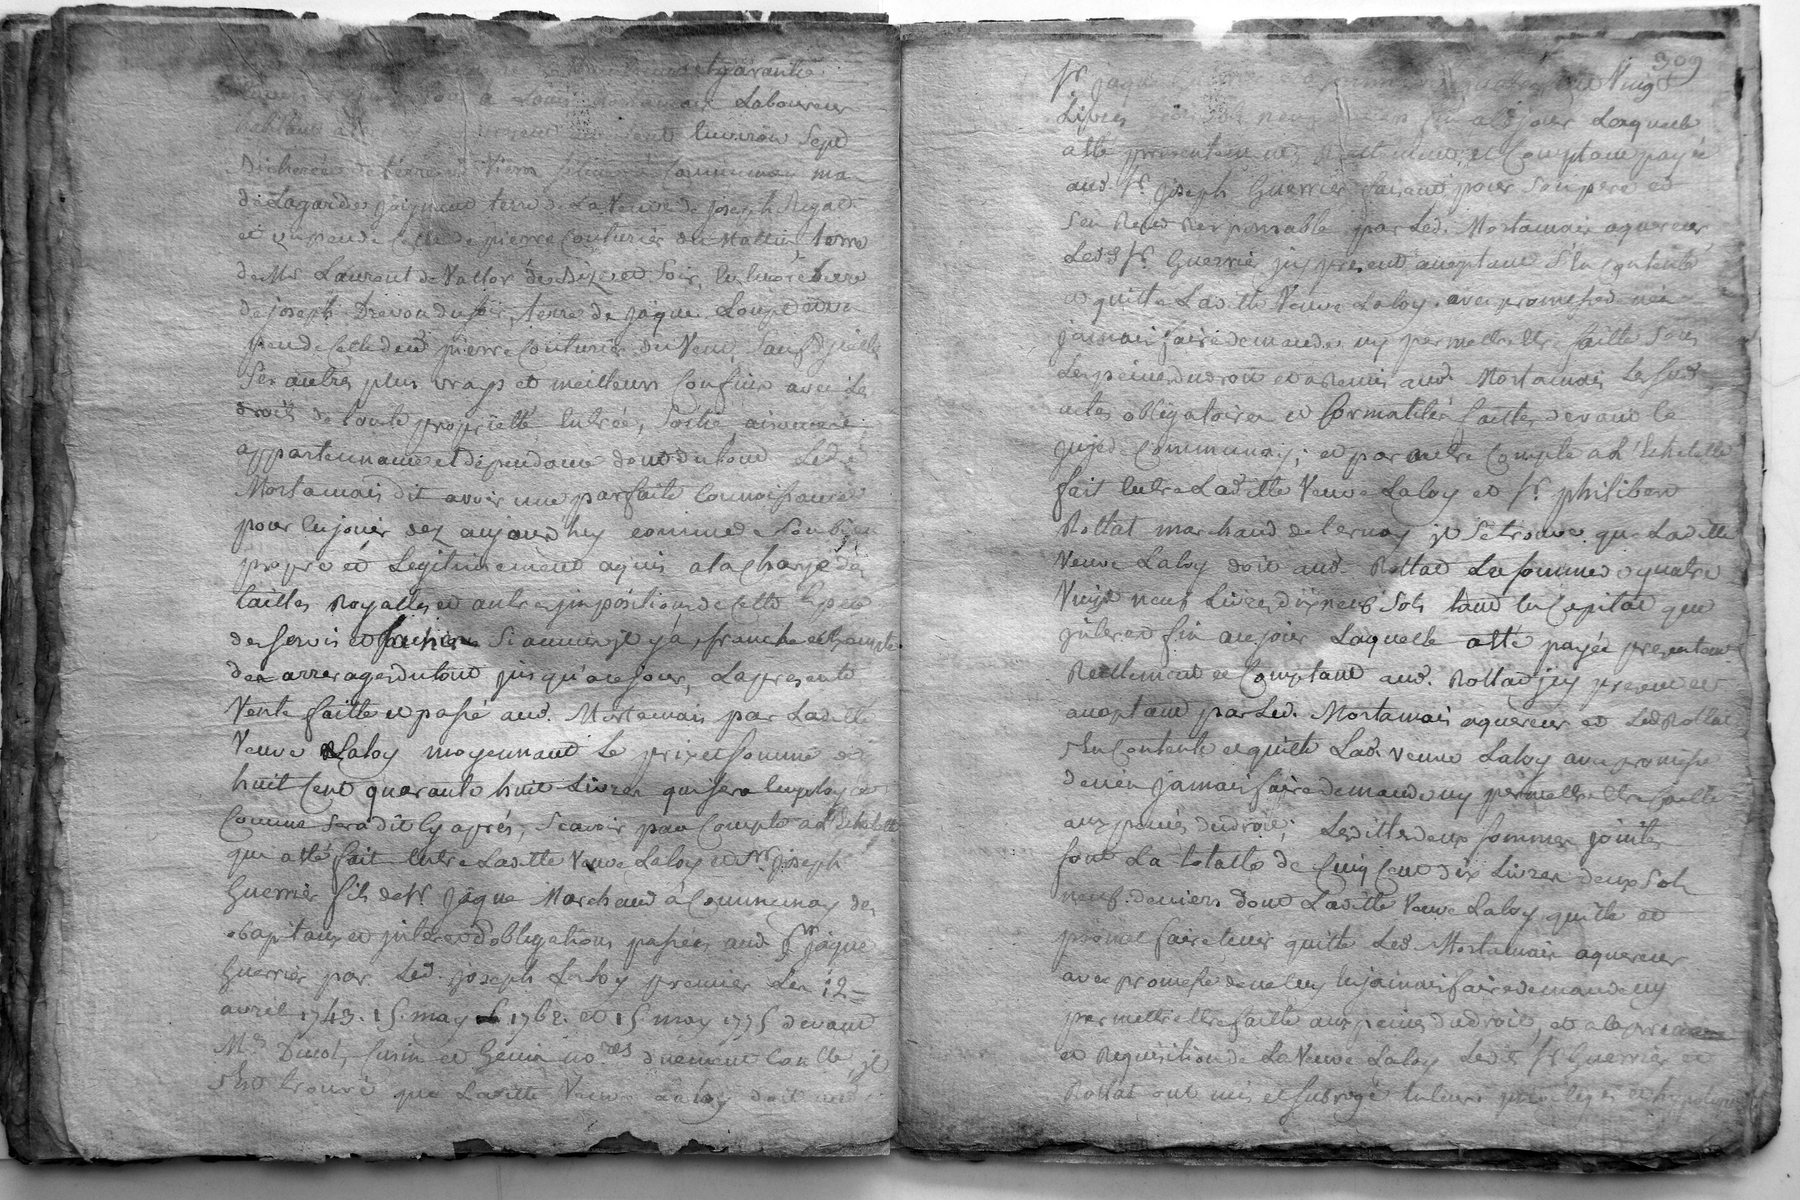 et garantie
a Louis Mortamais Laboureur
habitant a environ Sept
Bicherées de terre et Situé a Communay ma
de Lagarde joignant terre de La Veuve de joseph Regat
et un peu de Celle de pierre Couturier du Mattin, terre
de Mr Laurent de Vallor de Bize et Soir, en encore terre
de joseph Drevon du Soir, terre de jaque Loup et un
peu de Celle dud pierre Couturier du Vent, Sauf d'icelle
Ses autres plus vrays et meilleurs Confins avec Les
droits de toute proprietté Entrée, Sortie aisances
appartenance et dépendance dont du tout Led.
Mortamais dit avoir une parfaite Connoissance
pour En jouir dez aujourd huy comme de Son bien
propre et Legitimement aquis a la Charge des
tailles Royalles et autres jmpositions de Cette Espece
de Servis et Si aucun jl y a, franche et Exempte
des arrerages du tout jusqu'a ce jour, La presente
Vente faitte et passé aud. Mortamais par Laditte
Veuve Laloy moyennant Le prix et Somme de
huit Cent quarante huit Livres qui Sera Employée
Comme Sera dit Cy aprés, Scavoir par Compte a L'Echelette
qui a été fait Entre Laditte Veuve Laloy et Sr joseph
Guerrier fils de Sr jaque Marchand a Communay des
Capitaux et jnterets d'obligations passées aud. Sr jaque
Guerrier par Led. joseph Laloy premier Les 12
avril 1743. 15. may 1762. et 15 may 1775 devant
Mes Ducol, Cusin et Genin nores duement Conlle, jl
S'Est trouvé que Laditte Veuve Laloy doit aud
309
Sr jaque quatre cent Vingt
Livres neuf deniers a ce jour Laquelle
a été presentement, Reellement, et Comptant payée
aud. Sr joseph Guerrier faisant pour Son pere et
S'En Rend Responsable par Led. Mortamais aquereur,
Led Sr. Guerrier jcy present aceptant S'En Contente
et quitte Laditte Veuve Laloy avec promesse de n'en
jamais faire demande ny permettre Etre faitte Sous
Les peines du droit et a Remis aud. Mortamais Les Susd
actes obligatoires et formalités faittes devant le
juje de Communay; et par autre Compte a L'Echelette
fait Entre Laditte Veuve Laloy et Sr. philibert
Rottat marchand de Ternay jl Se trouve que Laditte
Veuve Laloy doit aud. Rottat La Somme de quatre
Vingt neuf Livres dix neuf Sols tant En Capital que
jnteret fin a ce jour Laquelle a été payée presentem
Reellement et Comptant aud. Rottat jcy present et
aceptant par Led. Mortamais aquereur et Led Rottat
S'En Contente et quitte Lad. Veuve Laloy avec promesse
de n'en jamais faire demande ny permettre Etre faitte
aux peines du droit; Lesdittes deux Sommes jointes
font La totalle de Cinq Cent dix Livres deux Sols
neuf deniers dont Laditte Veuve Laloy quitte et
promet faire tenir quitte Led. Mortamais aquereur
avec promesse de ne luy En jamais faire demande ny
permettre Etre faitte aux peines du droit, et a la priere
et Requisition de La Veuve Laloy Lesds Sr Guerrier et
Rottat ont mis et Subrogé En Leurs privileges et hypoteques